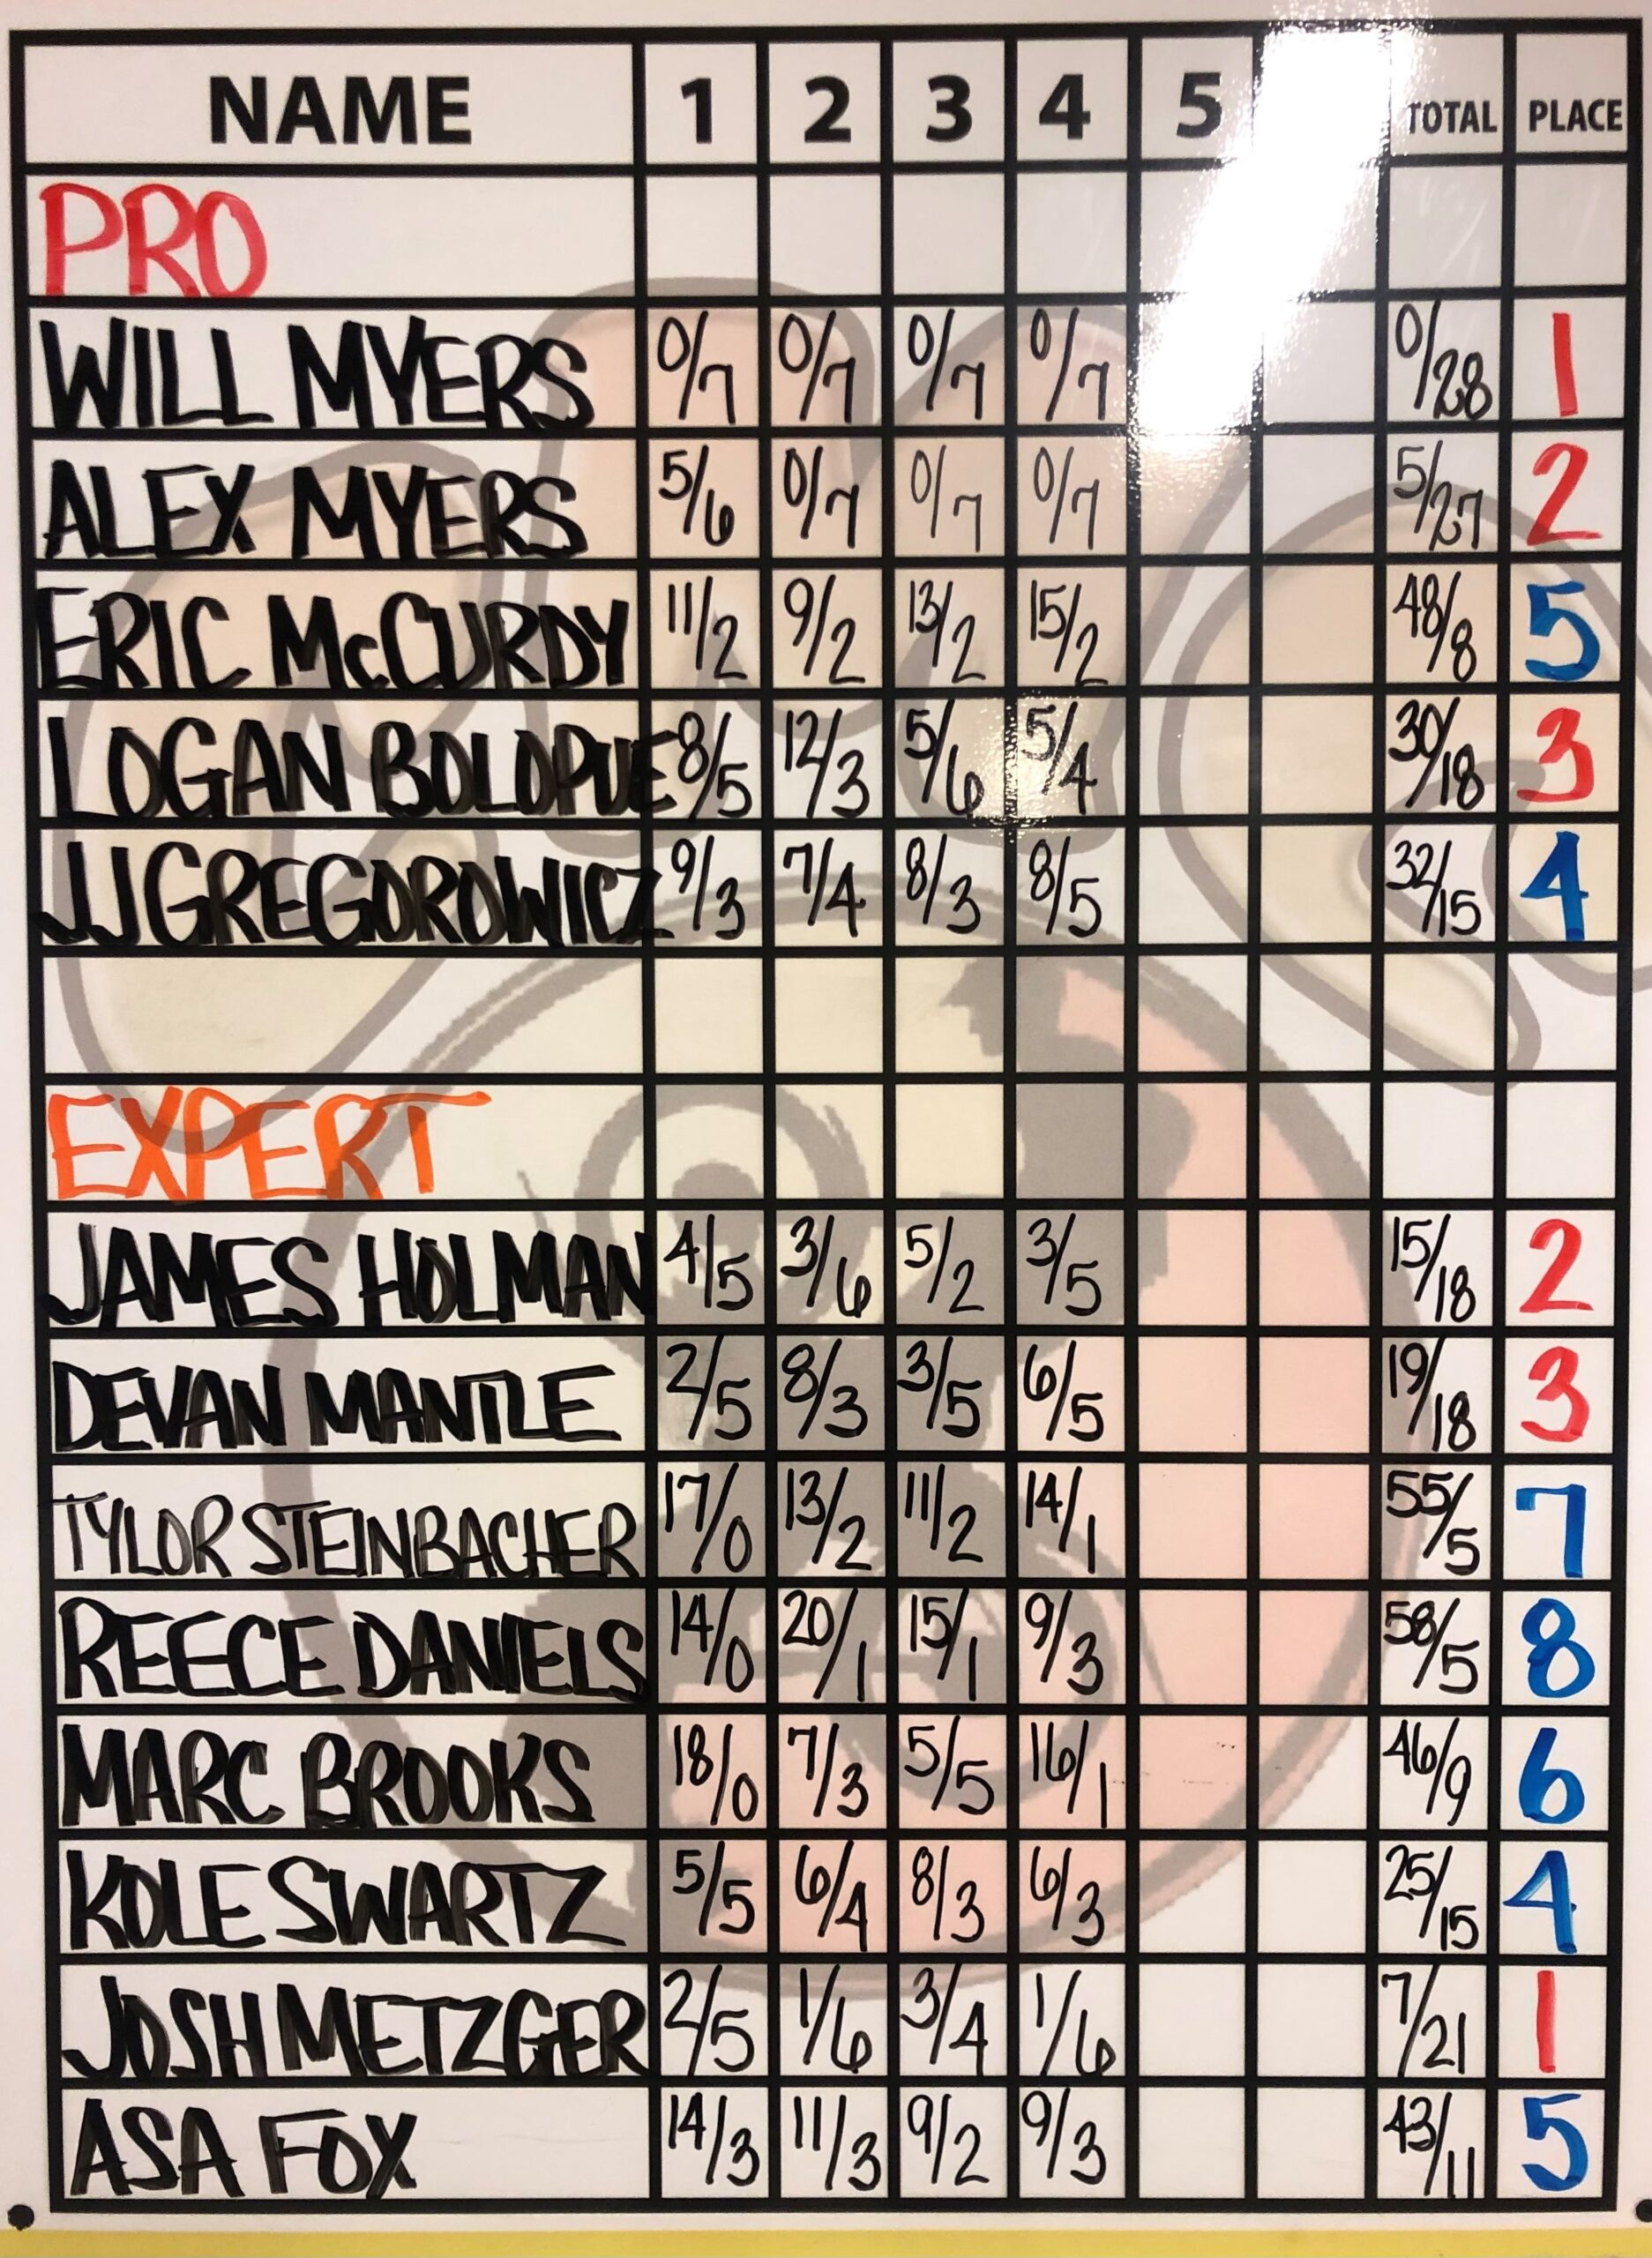 NAME 1 2 3 4 5 TOTAL PLACE
PRO
WILL MYERS 0/7 0/7 0/7 0/7 0/28 1
ALEX MYERS 5/6 0/7 0/7 0/7 5/27 2
ERIC McCURDY 11/2 9/2 13/2 15/2 48/8 5
LOGAN BOLOPUE 8/5 12/3 5/6 5/4 30/18 3
JJ GREGOROWICZ 9/3 7/4 8/3 8/5 32/15 4
EXPERT
JAMES HOLMAN 4/5 3/6 5/2 3/5 15/18 2
DEVAN MANTLE 2/5 8/3 3/5 6/5 19/18 3
TYLOR STEINBACHER 17/0 13/2 11/2 14/1 55/5 7
REECE DANIELS 14/0 20/1 15/1 9/3 58/5 8
MARC BROOKS 18/0 7/3 5/5 16/1 46/9 6
KOLE SWARTZ 5/5 6/4 8/3 6/3 25/15 4
JOSH METZGER 2/5 1/6 3/4 1/6 7/21 1
ASA FOX 14/3 11/3 9/2 9/3 43/11 5